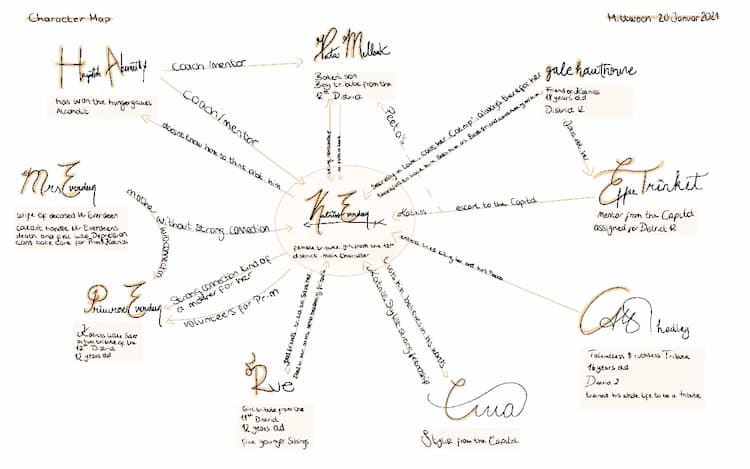 Character Map
Mittwoch 20 Januar 2021
Haymitch Abernathy
has won the hungergames
Alcoholic
Coach/mentor
Coach/mentor
doesn't know how to think abt. him
Peeta Mellark
Baker's son
Boy tribute from the
12th District
Peeta
gale hawthorne
Friend of Katniss
18 years old
District 12
Secretly in Love, calls her "Catnip", always there for her
Effie Trinket
mentor from the Capitol
assigned for District 12
Katniss
escort to the Capitol
Mrs Everdeen
wife of deceased Mr Everdeen
death and fell into Depression
mother
without strong connection
Katniss Everdeen
female tribute from the 12th
district, main Character
Primrose Everdeen
Katniss little Sister
12th District
12 years old
Strong connection kind of
a mother for her
volunteers for Prim
Rue
Girl tribute from the
11th District
12 years old
five younger Siblings
Cinna
Stylist from the Capitol
Katniss Stylist strong friendship
Cato Hadley
Talentless & ruthless Tribute
16 years old
District 2
trained his whole life to be a tribute